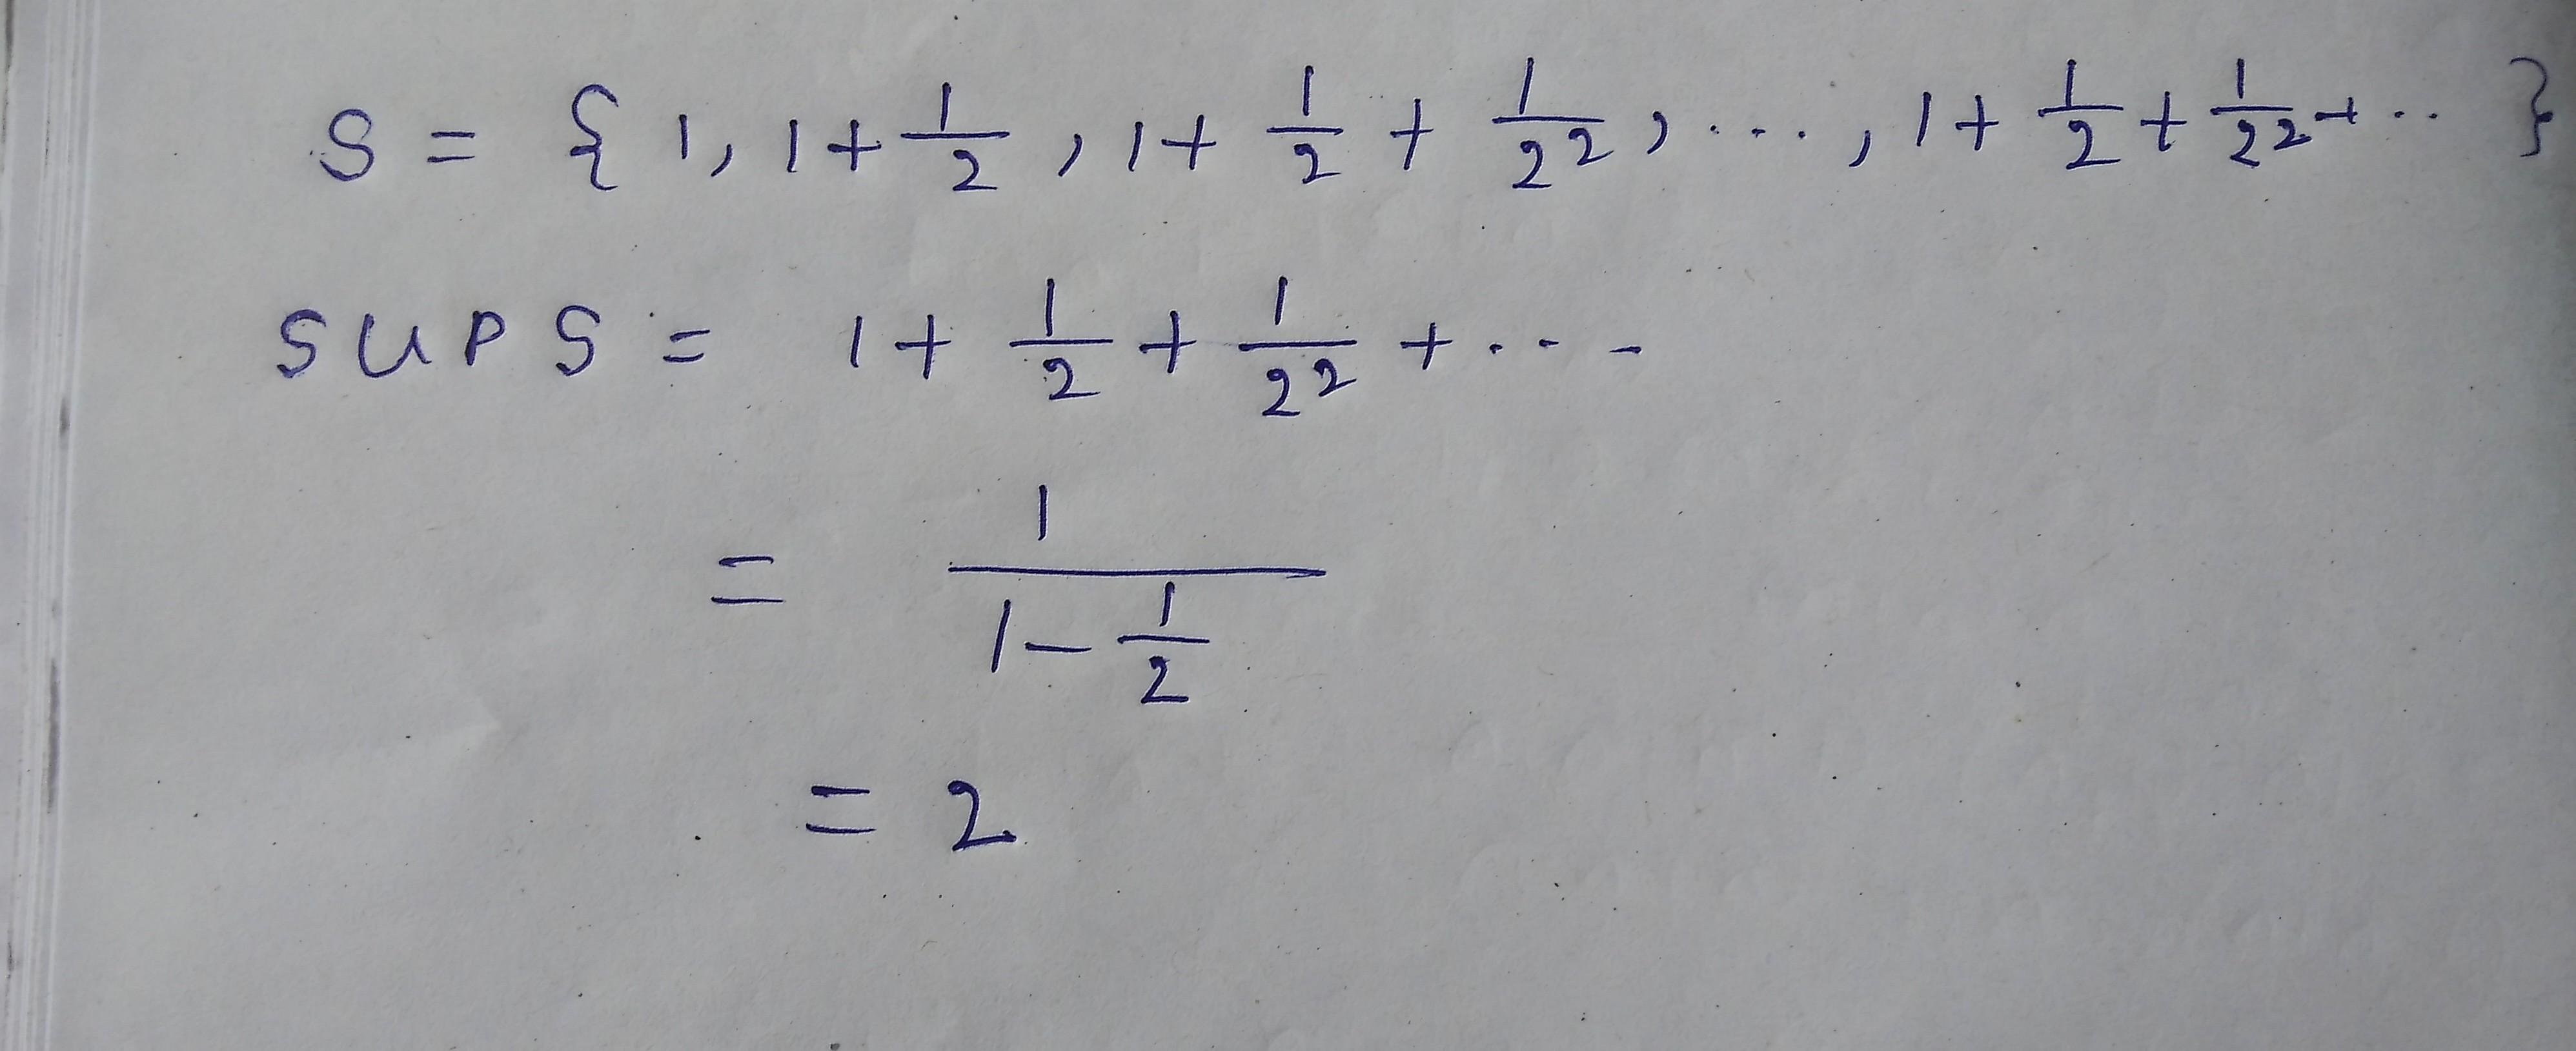 S = { 1, 1 + 1/2, 1 + 1/2 + 1/2², ..., 1 + 1/2 + 1/2² + .. }
SUP S = 1 + 1/2 + 1/2² + ...
= 1/(1 - 1/2)
= 2